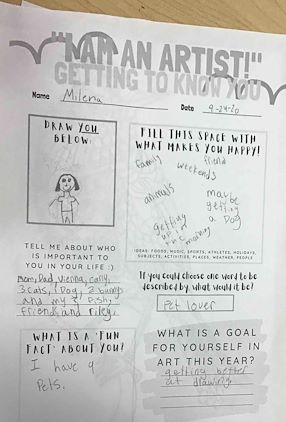 "I AM AN ARTIST!"
GETTING TO KNOW YOU
Name Milena Date 9-24-20
DRAW YOU
BELOW:
FILL THIS SPACE WITH
WHAT MAKES YOU HAPPY!
family
friend
weekends
animals
maybe
getting
a Dog
getting
up in
the morning
IDEAS: FOODS, MUSIC, SPORTS, ATHLETES, HOLIDAYS,
SUBJECTS, ACTIVITIES, PLACES, WEATHER, PEOPLE
TELL ME ABOUT WHO
IS IMPORTANT TO
YOU IN YOUR LIFE :)
mom, Dad, vienna, carly,
3 cats, 1 Dog, 2 bunnys
and my 3 fish,
friends and riley,
If you could choose one word to be
described by, what would it be?
Pet lover
WHAT IS A "FUN
FACT" ABOUT YOU?
I have 9
Pets.
WHAT IS A GOAL
FOR YOURSELF IN
ART THIS YEAR?
getting better
at drawing